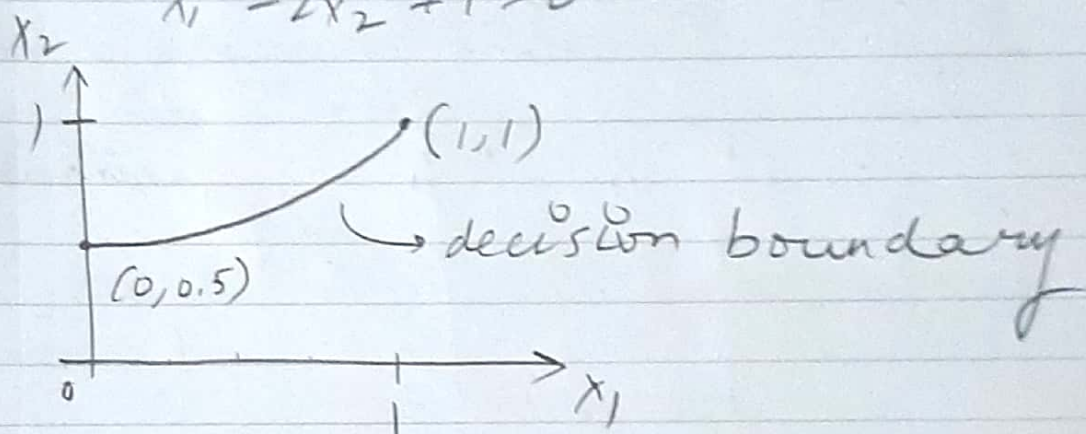 x₂
1
(1,1)
decision boundary
(0,0.5)
0
1
x₁